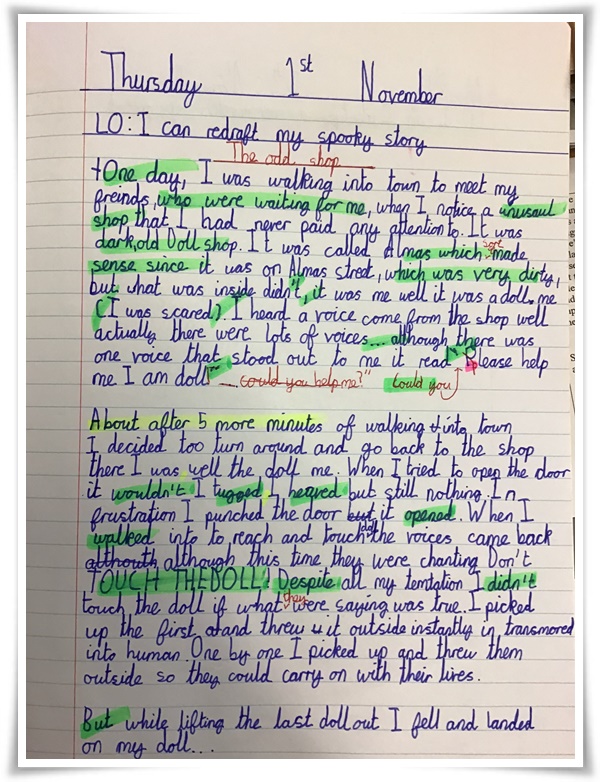 Thursday 1st November
LO: I can redraft my spooky story
The odd shop
One day, I was walking into town to meet my
freinds, who were waiting for me, when I notice a unusaul
shop that I had never paid any attention to. It was
dark, old Doll shop. It was called Almas which sort made
sense since it was on Almas street, which was very dirty,
but what was inside didn't, it was me well it was a doll me
(I was scared). I heard a voice come from the shop well
actually there were lots of voices... although there was
one voice that stood out to me it read " Please help
me I am doll" could you help me?" Could you
About after 5 more minutes of walking into town
I decided too turn around and go back to the shop
there I was well the doll me. When I tried to open the door
it wouldn't I tugged I heaved but still nothing. In
frustration I punched the door but it opened. When I
walked into to reach and touch the doll the voices came back
althouth although this time they were chanting Don't
TOUCH THE DOLL! Despite all my temtation I didn't
touch the doll if what they were saying was true. I picked
up the first and threw it outside instantly in transmored
into human. One by one I picked up and threw them
outside so they could carry on with their lives.
But while lifting the last doll out I fell and landed
on my doll...